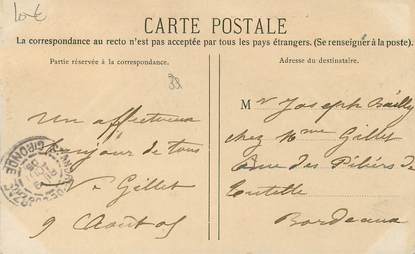 CARTE POSTALE
La correspondance au recto n'est pas acceptée par tous les pays étrangers. (Se renseigner à la poste).
Partie réservée à la correspondance.
Adresse du destinataire.
Un affectueux
bonjour de tous
Gillet
9 Août 05
Mr Joseph
chez Mme Gillet
Rue des Piliers de
Tutelle
Bordeaux
GIRONDE